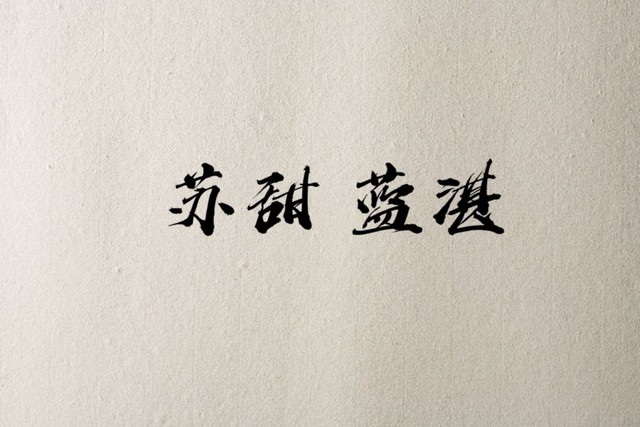 苏甜 蓝湛